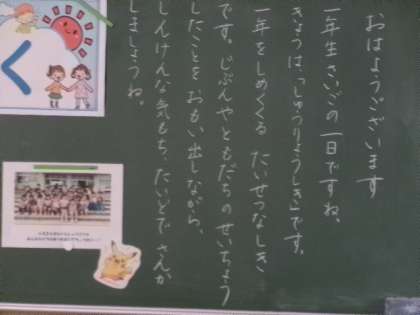 おはようございます
一年生さいごの一日ですね。
きょうは、「しゅうりょうしき」です。
一年をしめくくる たいせつなしき
です。じぶんやともだちのせいちょう
したことを おもい出しながら、
しんけんな気もち、たいどで さんか
しましょうね。
く